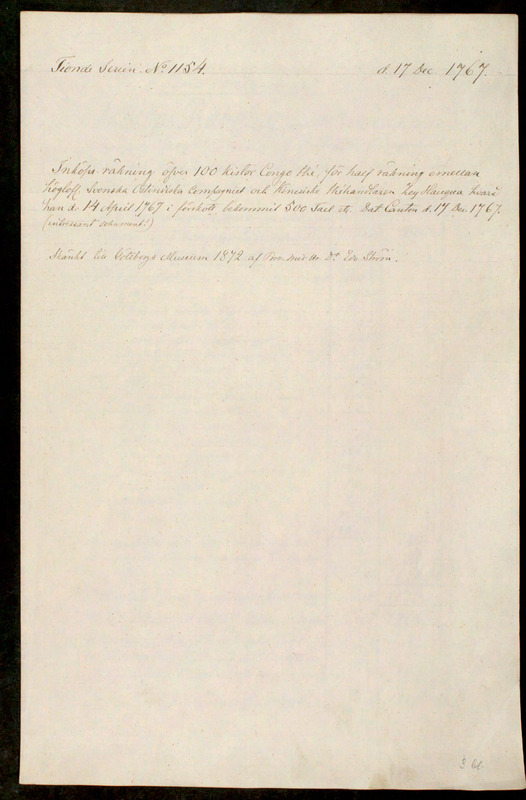 Tionde Serien. No 1154. d. 17 Dec. 1767.
Inköps räkning öfver 100 kistor Congo thé, för half räkning emellan
höglofl. Svenska Ostindiska Compagniet och Kinesiske théhandlaren
han d. 14 April 1767 i förskott bekommit 500 Tael etc. Dat. Canton d. 17 Dec 1767.
(intressant dokument!)
Skänkt till Göteborgs Museum 1872 af Dr